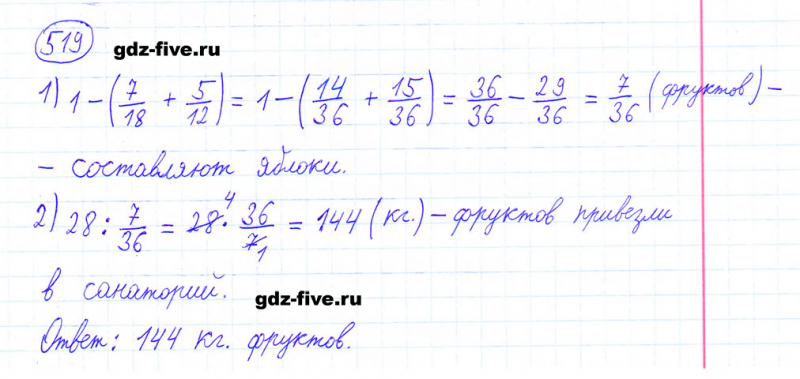 519
gdz-five.ru
1) 1 − (7/18 + 5/12) = 1 − (14/36 + 15/36) = 36/36 − 29/36 = 7/36 (фруктов) −
− составляют яблоки.
2) 28 : 7/36 = 28⁴ · 36/7₁ = 144 (кг.) − фруктов привезли
в санаторий.
gdz-five.ru
Ответ: 144 кг. фруктов.